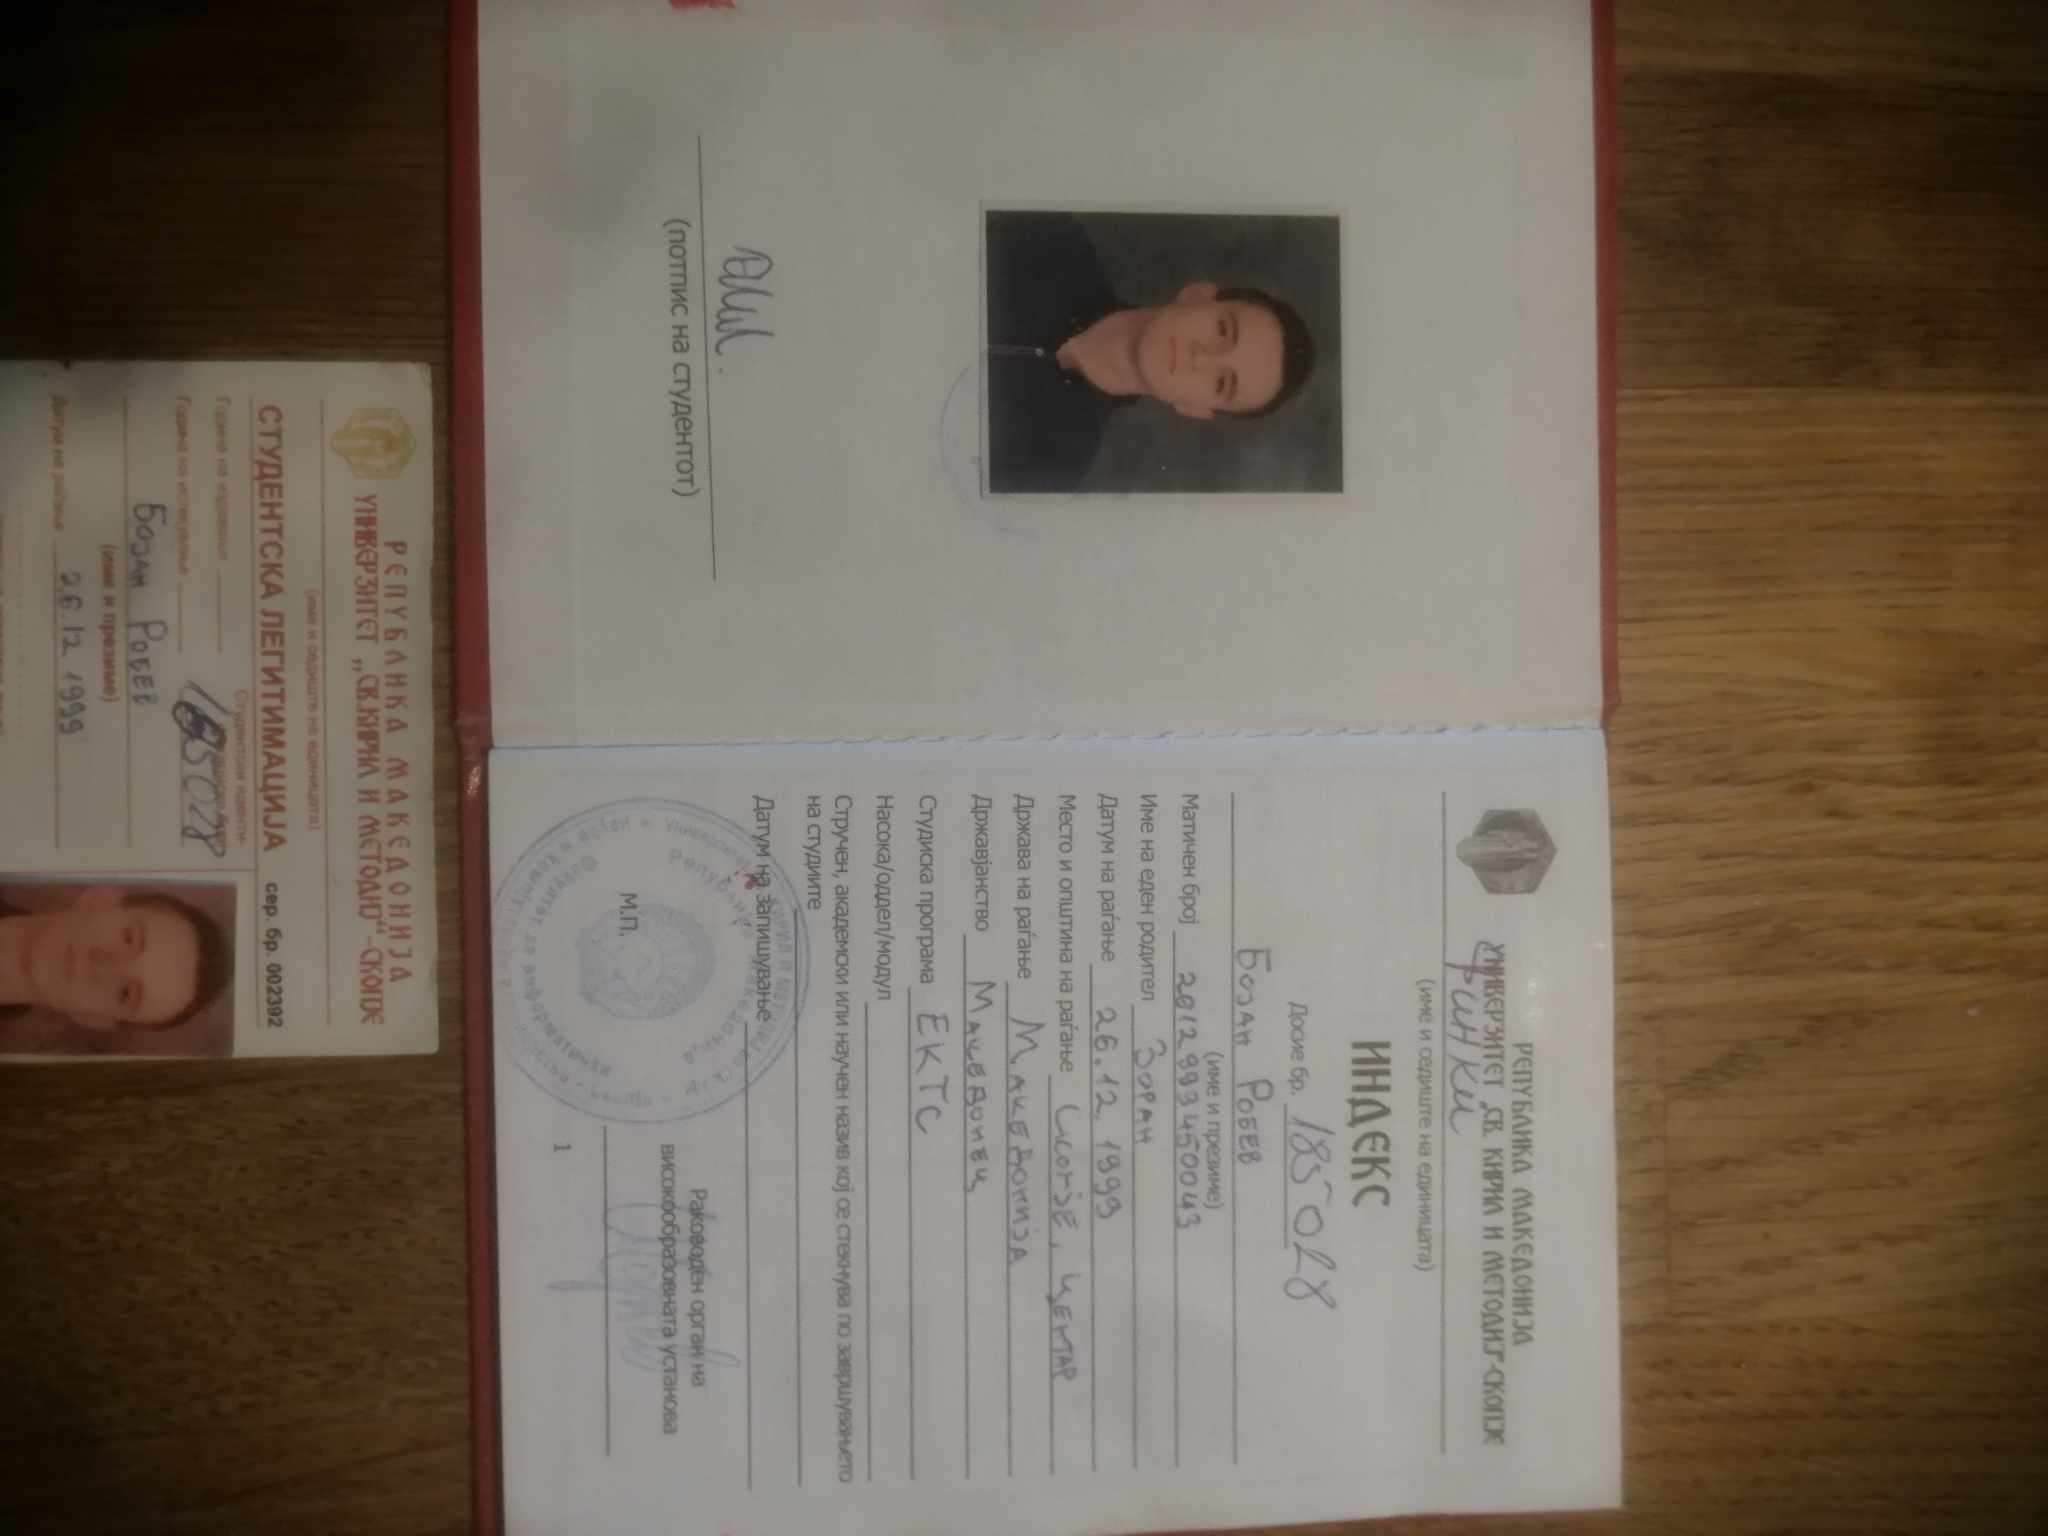 РЕПУБЛИКА МАКЕДОНИЈА
УНИВЕРЗИТЕТ „СВ. КИРИЛ И МЕТОДИЈ“-СКОПЈЕ
ФИНКИ
(име и седиште на единицата)
ИНДЕКС
Досие бр. 185028
Бојан Робев
(име и презиме)
Матичен број
Име на еден родител Зоран
Датум на раѓање 26.12.1999
Место и општина на раѓање Скопје, Центар
Држава на раѓање Македонија
Државјанство Македонец
Студиска програма ЕКТС
Насока/оддел/модул
Стручен, академски или научен назив кој се стекнува по завршувањето
на студиите
Датум на запишување
Раководен орган на
високообразовната установа
М.П.
1
Република Македонија
Факултет за информатички
(потпис на студентот)
РЕПУБЛИКА МАКЕДОНИЈА
УНИВЕРЗИТЕТ „СВ.КИРИЛ И МЕТОДИЈ“-СКОПЈЕ
(име и седиште на единицата)
СТУДЕНТСКА ЛЕГИТИМАЦИЈА сер. бр. 002392
Студентски иденти-
Година на издавање
185028
Година на истекување
Бојан Робев
(име и презиме)
Датум на раѓање 26.12.1999